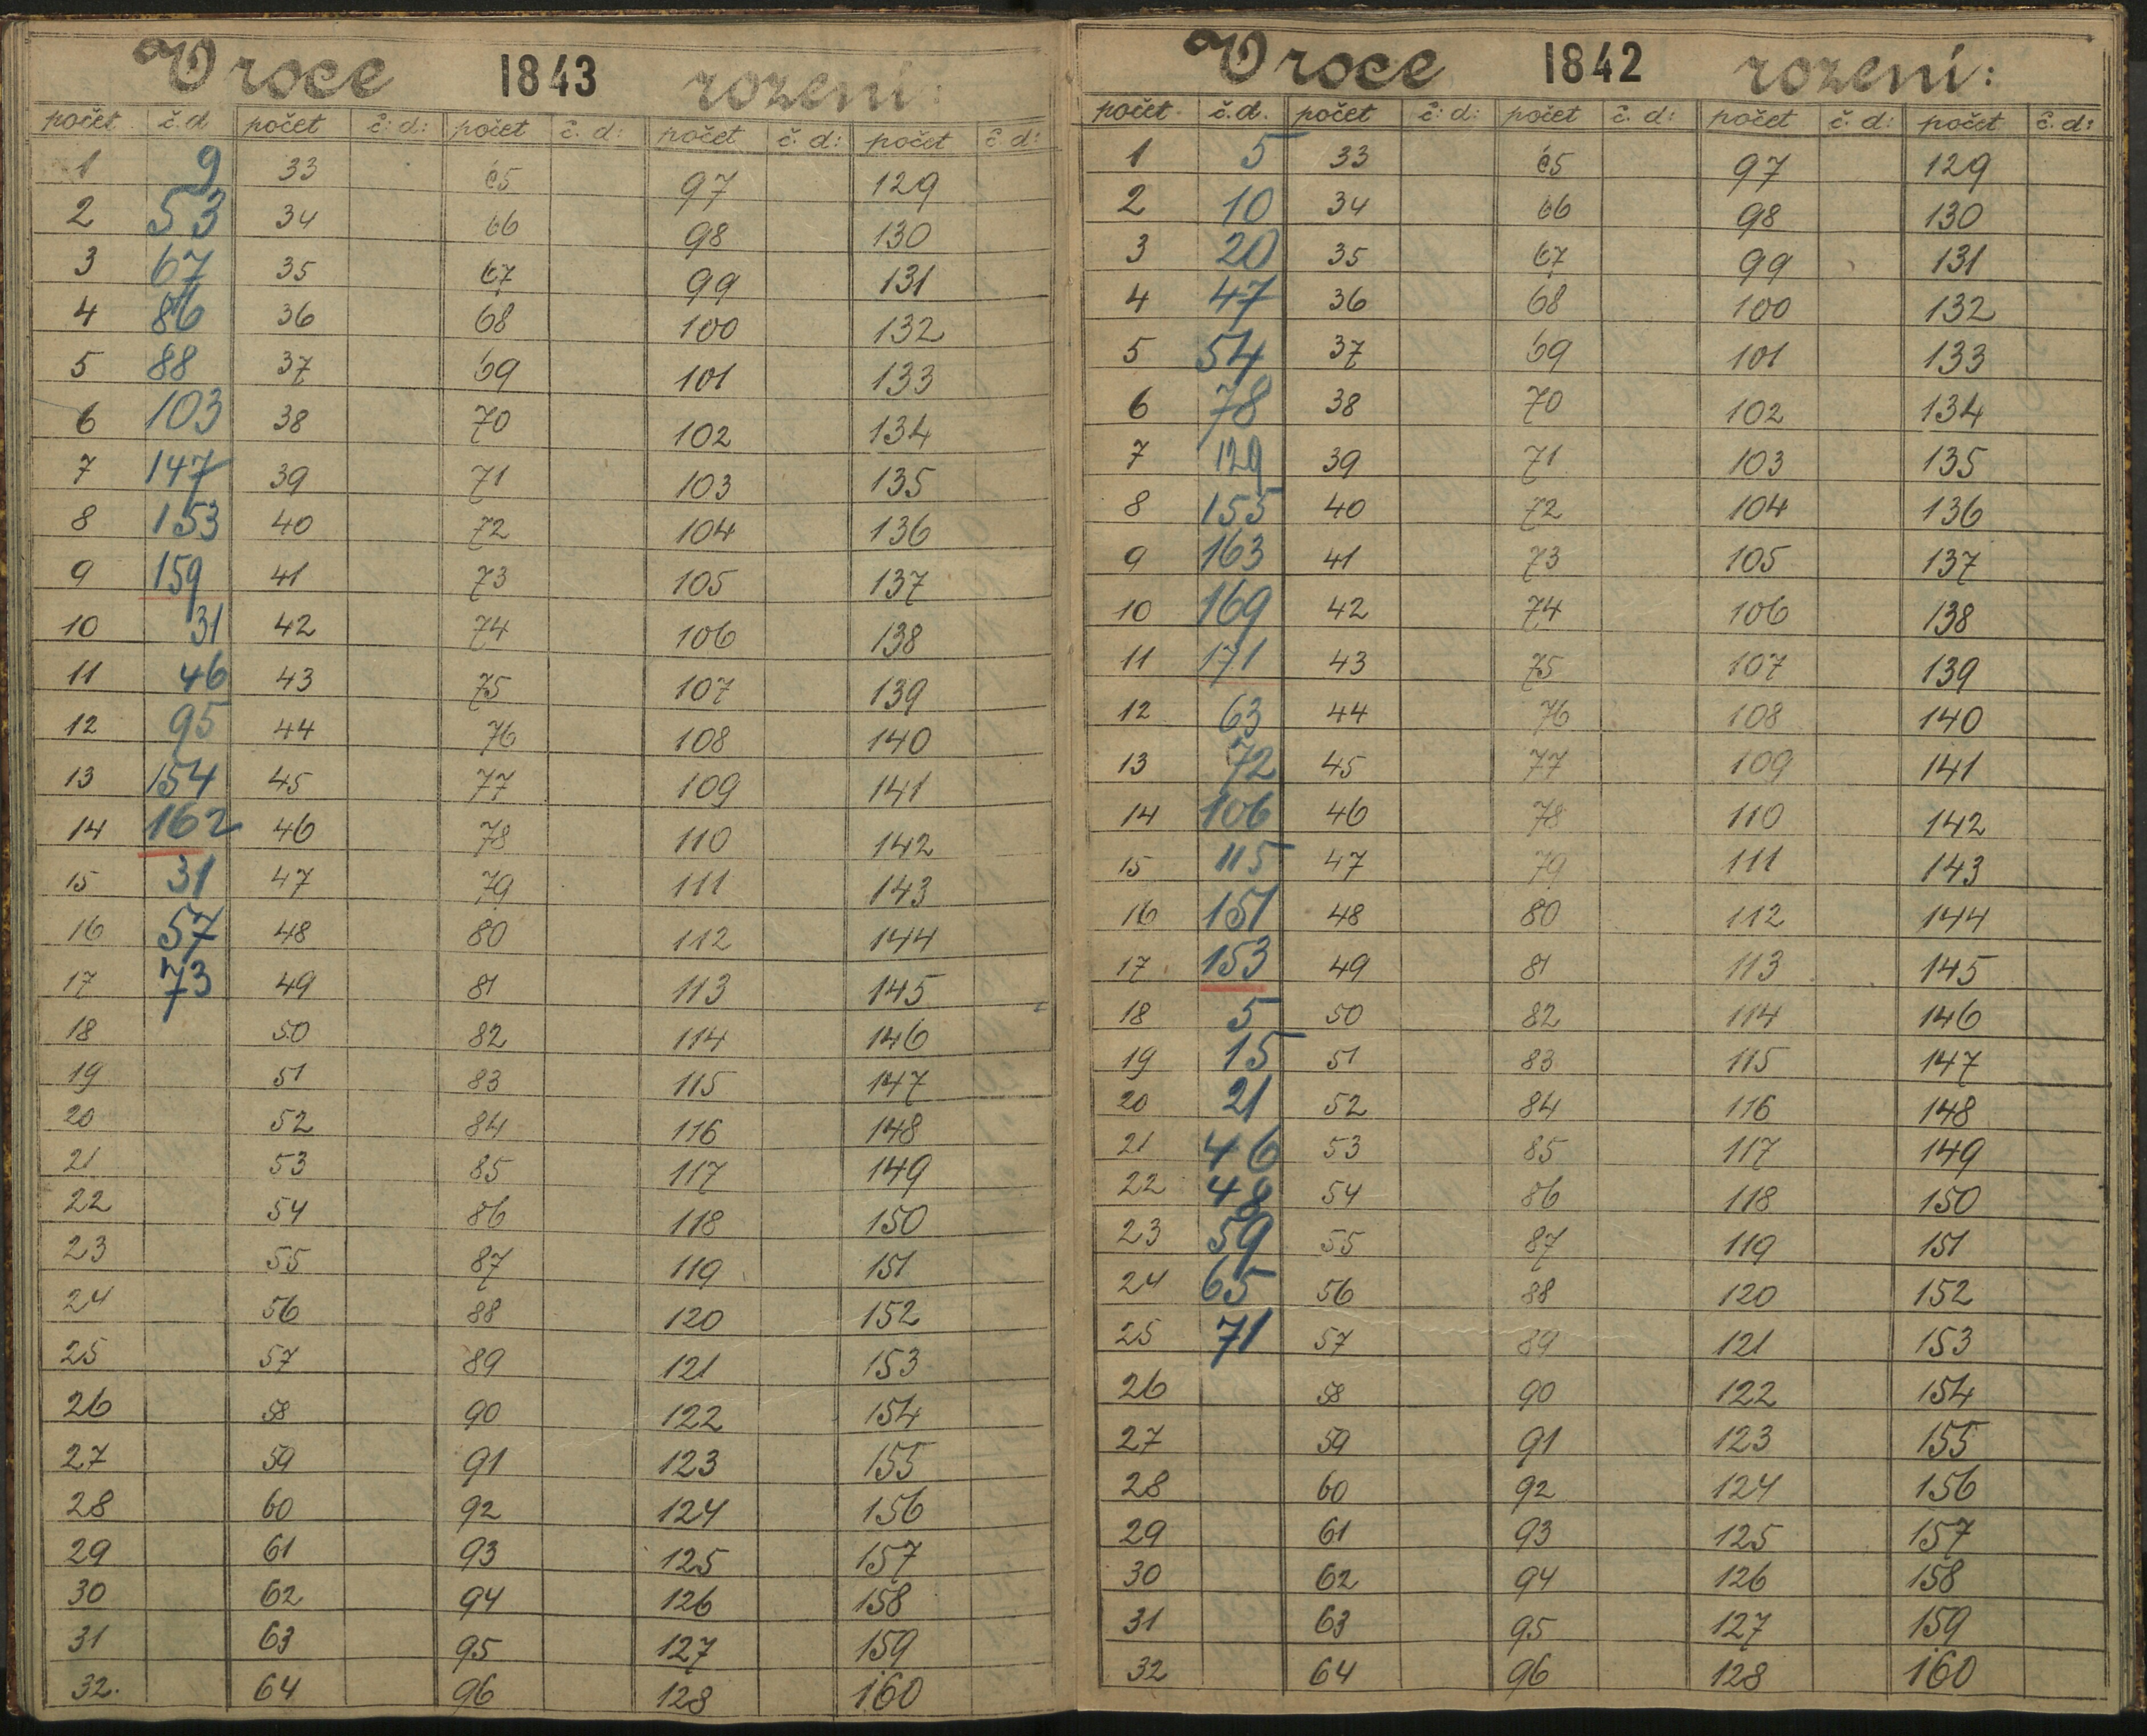 V roce 1843 rození:
počet č.d počet č: d: počet č. d: počet č. d: počet č d:
1 9 33 65 97 129
2 53 34 66 98 130
3 67 35 67 99 131
4 86 36 68 100 132
5 88 37 69 101 133
6 103 38 70 102 134
7 147 39 71 103 135
8 153 40 72 104 136
9 159 41 73 105 137
10 31 42 74 106 138
11 46 43 75 107 139
12 95 44 76 108 140
13 154 45 77 109 141
14 162 46 78 110 142
15 31 47 79 111 143
16 57 48 80 112 144
17 73 49 81 113 145
18 50 82 114 146
19 51 83 115 147
20 52 84 116 148
21 53 85 117 149
22 54 86 118 150
23 55 87 119 151
24 56 88 120 152
25 57 89 121 153
26 58 90 122 154
27 59 91 123 155
28 60 92 124 156
29 61 93 125 157
30 62 94 126 158
31 63 95 127 159
32. 64 96 128 160
V roce 1842 rození:
počet. č.d. počet č: d: počet č. d: počet č. d: počet č. d:
1 5 33 65 97 129
2 10 34 66 98 130
3 20 35 67 99 131
4 47 36 68 100 132
5 54 37 69 101 133
6 78 38 70 102 134
7 129 39 71 103 135
8 155 40 72 104 136
9 163 41 73 105 137
10 169 42 74 106 138
11 171 43 75 107 139
12 63 44 76 108 140
13 72 45 77 109 141
14 106 46 78 110 142
15 115 47 79 111 143
16 151 48 80 112 144
17 153 49 81 113 145
18 5 50 82 114 146
19 15 51 83 115 147
20 21 52 84 116 148
21 46 53 85 117 149
22 48 54 86 118 150
23 59 55 87 119 151
24 65 56 88 120 152
25 71 57 89 121 153
26 58 90 122 154
27 59 91 123 155
28 60 92 124 156
29 61 93 125 157
30 62 94 126 158
31 63 95 127 159
32 64 96 128 160